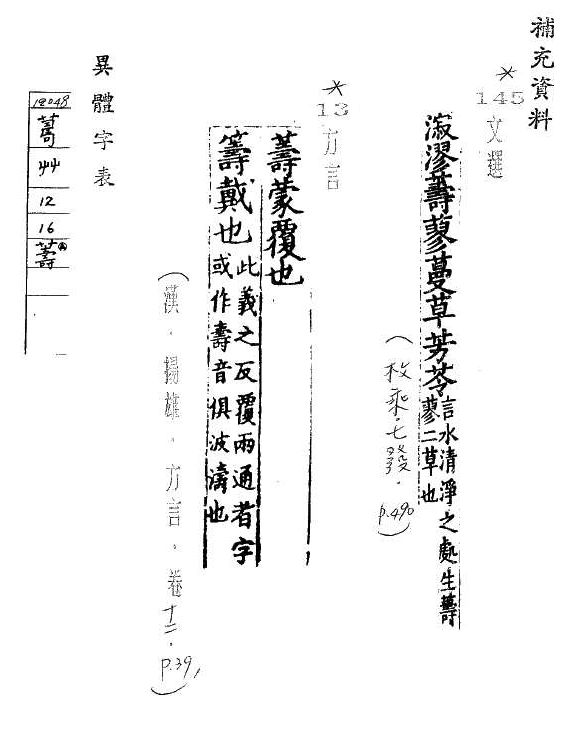 補充資料
*
145
文選
漃漻薵蓼蔓草芳苓言水清淨之處生薵
蓼二草也
(枚乘·七發·
p.490)
*
13
方言
薵蒙覆也
薵戴也此義之反覆兩通者字
或作壽音俱波濤也
(漢·揚雄·方言·卷十二·
p.39)
異體字表
艸
12
16
薵